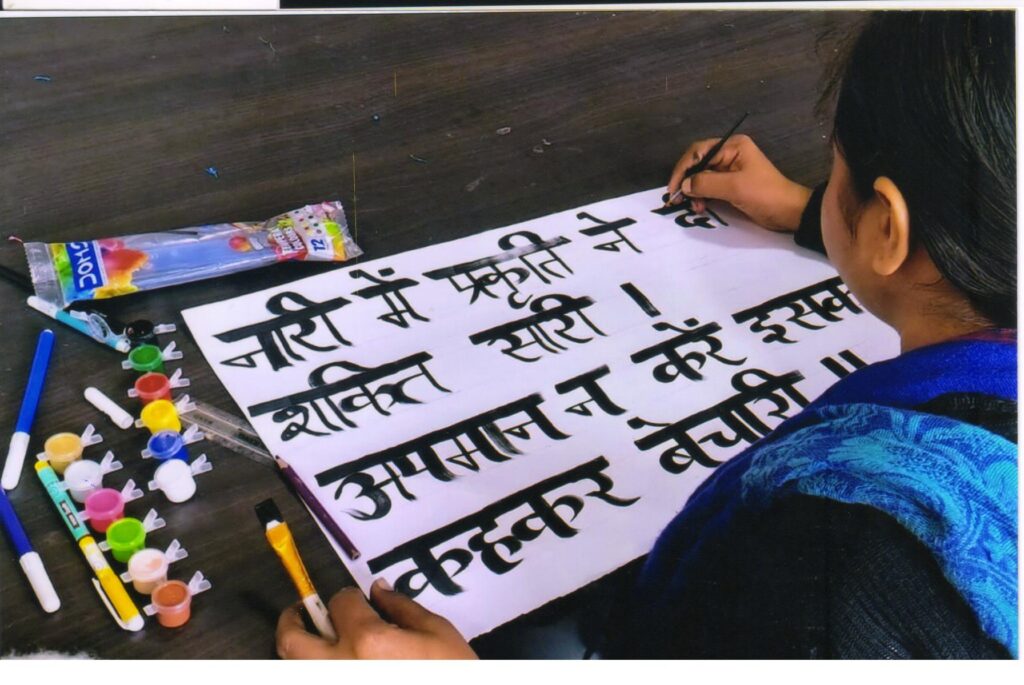 नारी में प्रकृति ने
शक्ति सारी ।
अपमान न करें इसक
कहकर बेचारी ॥
DOMS
12